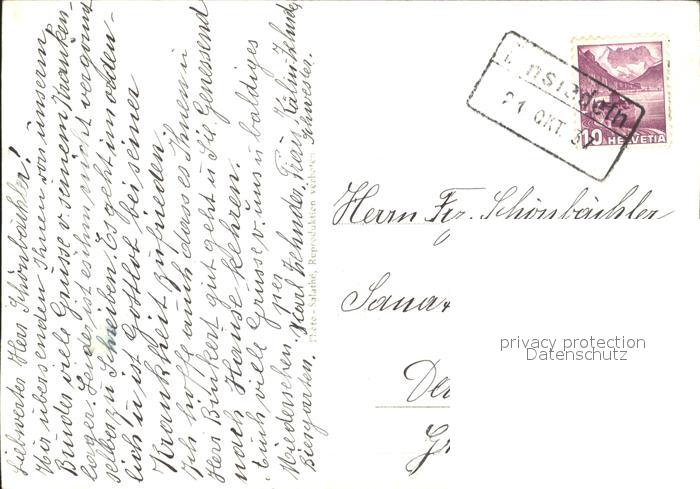 Liebwerter Herr Schönbächler!
Wir übersenden Ihnen von unserm
Bruder viele Grüsse v. seinem Kranken-
lager. Leider ist es ihm nicht vergönnt
selber zu schreiben. Es geht im orden-
lich u. ist gottlob bei seiner
Krankheit zufrieden.
Ich hoffe auch dass es Ihnen u.
Herr Binkert gut geht u. Sie Genessend
nach Hause kehren.
Euch viele Grüsse v. uns u. baldiges
Wiedersehen.
Karl Zehnder, Frau Kälin-Zehnder
Biergarten. Schwester.
Photo-Salathé, Reproduktion verboten
Einsiedeln
21 OKT. 37
10 HELVETIA
Herrn Frz. Schönbächler
Sana
privacy protection
Datenschutz